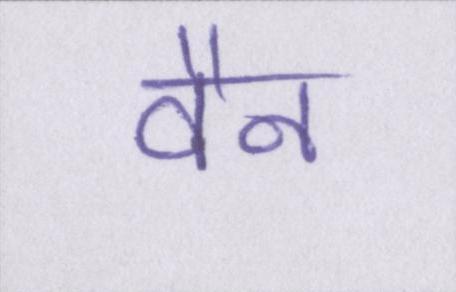 वैन